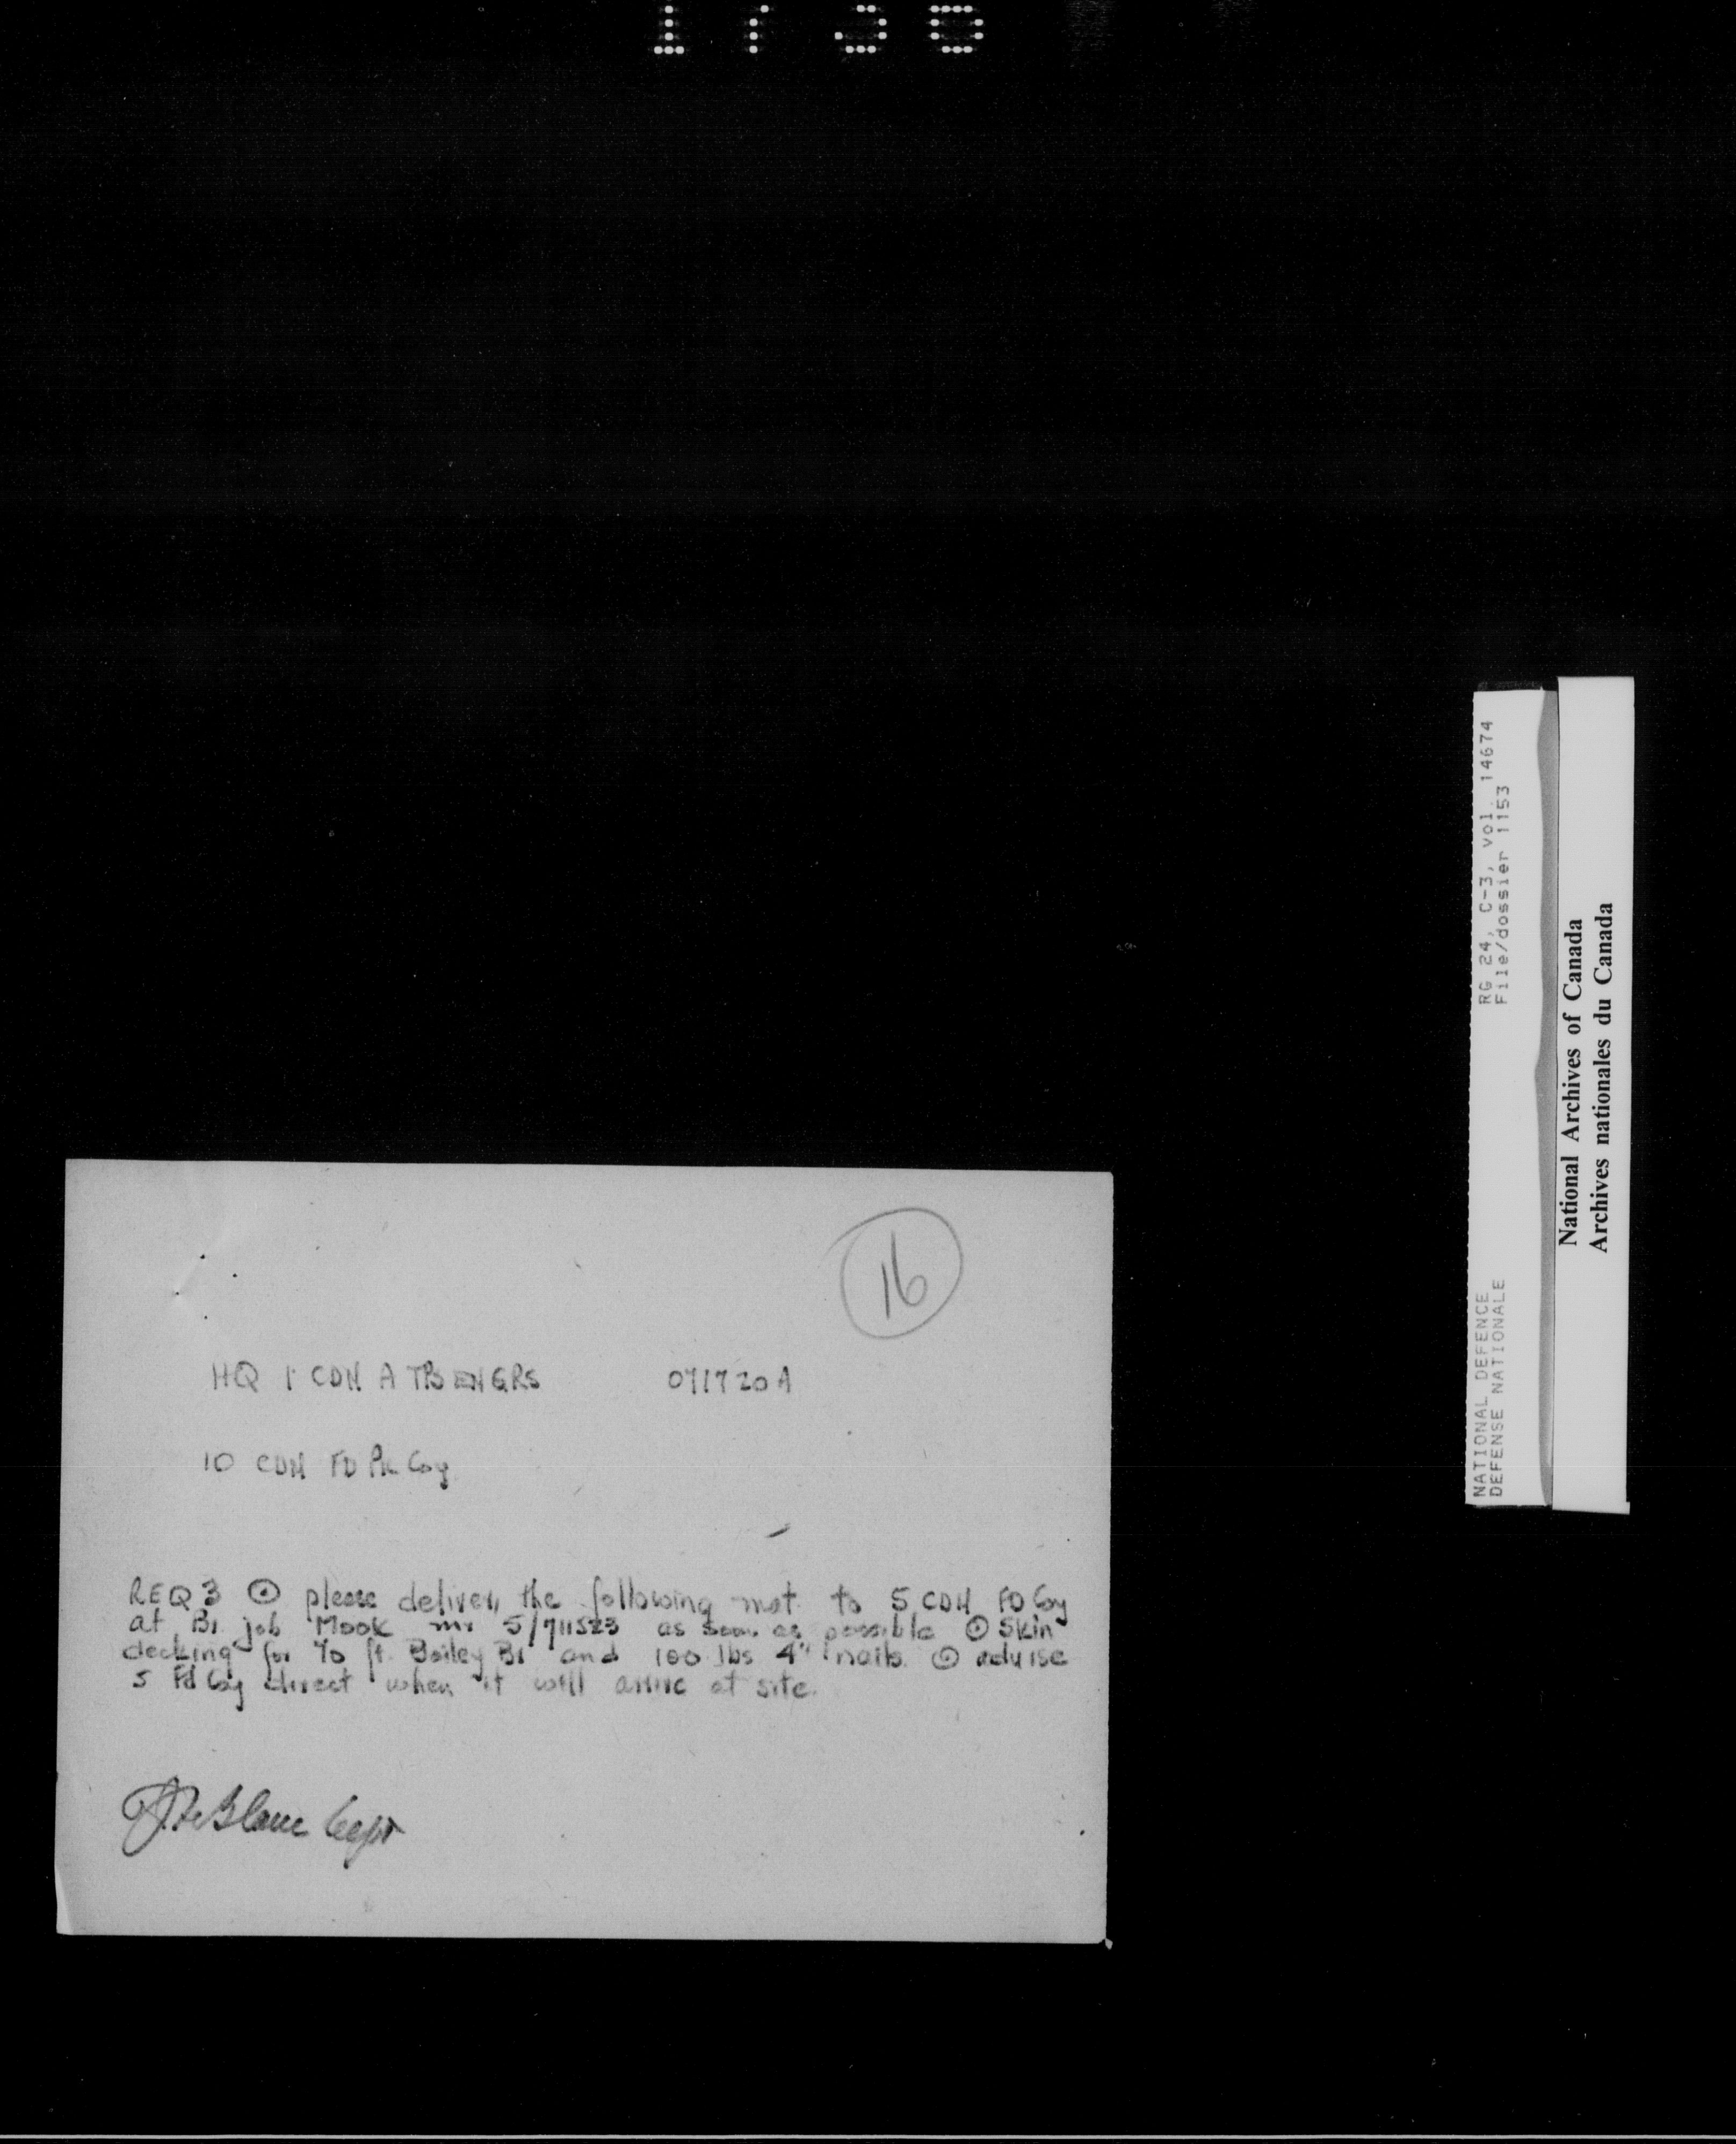 16
HQ 1 CDN A TPS ENGRS 071720A
10 CDN FD PK Coy
REQ 3 ⊙ please deliver the following mat to 5 CDN FD Coy
at Br job Mook mr 5/711523 as soon as possible ⊙ Skin
decking for 70 ft. Bailey Br and 100 lbs 4" nails ⊙ advise
5 Fd Coy direct when it will arrive at site.
LeBlanc Capt
RG 24, C-3, vol. 14674
File/dossier 1153
NATIONAL DEFENCE
DEFENSE NATIONALE
National Archives of Canada
Archives nationales du Canada